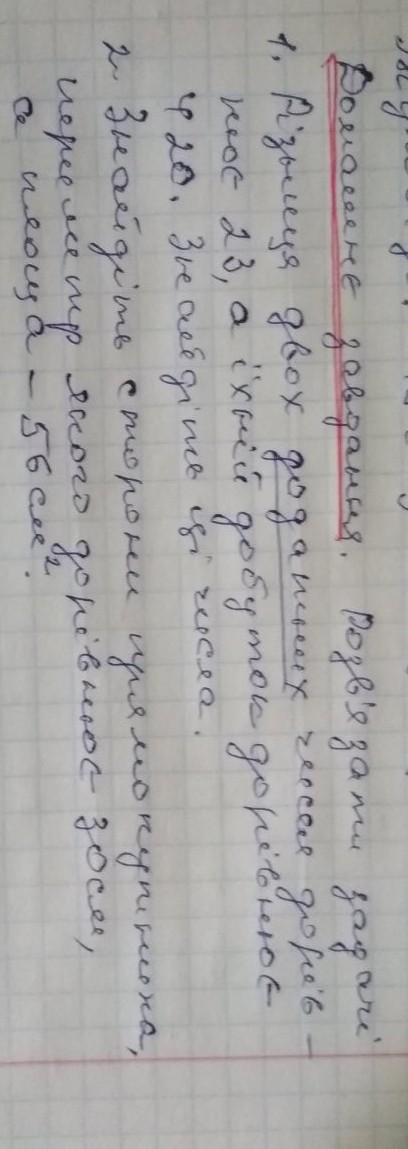 Домашнє завдання. Розв'язати задачі
1. Різниця двох додатних чисел дорів-
нює 23, а їхній добуток дорівнює
420. Знайдіть ці числа.
2. Знайдіть сторони прямокутника,
периметр якого дорівнює 30см,
а площа - 56см².